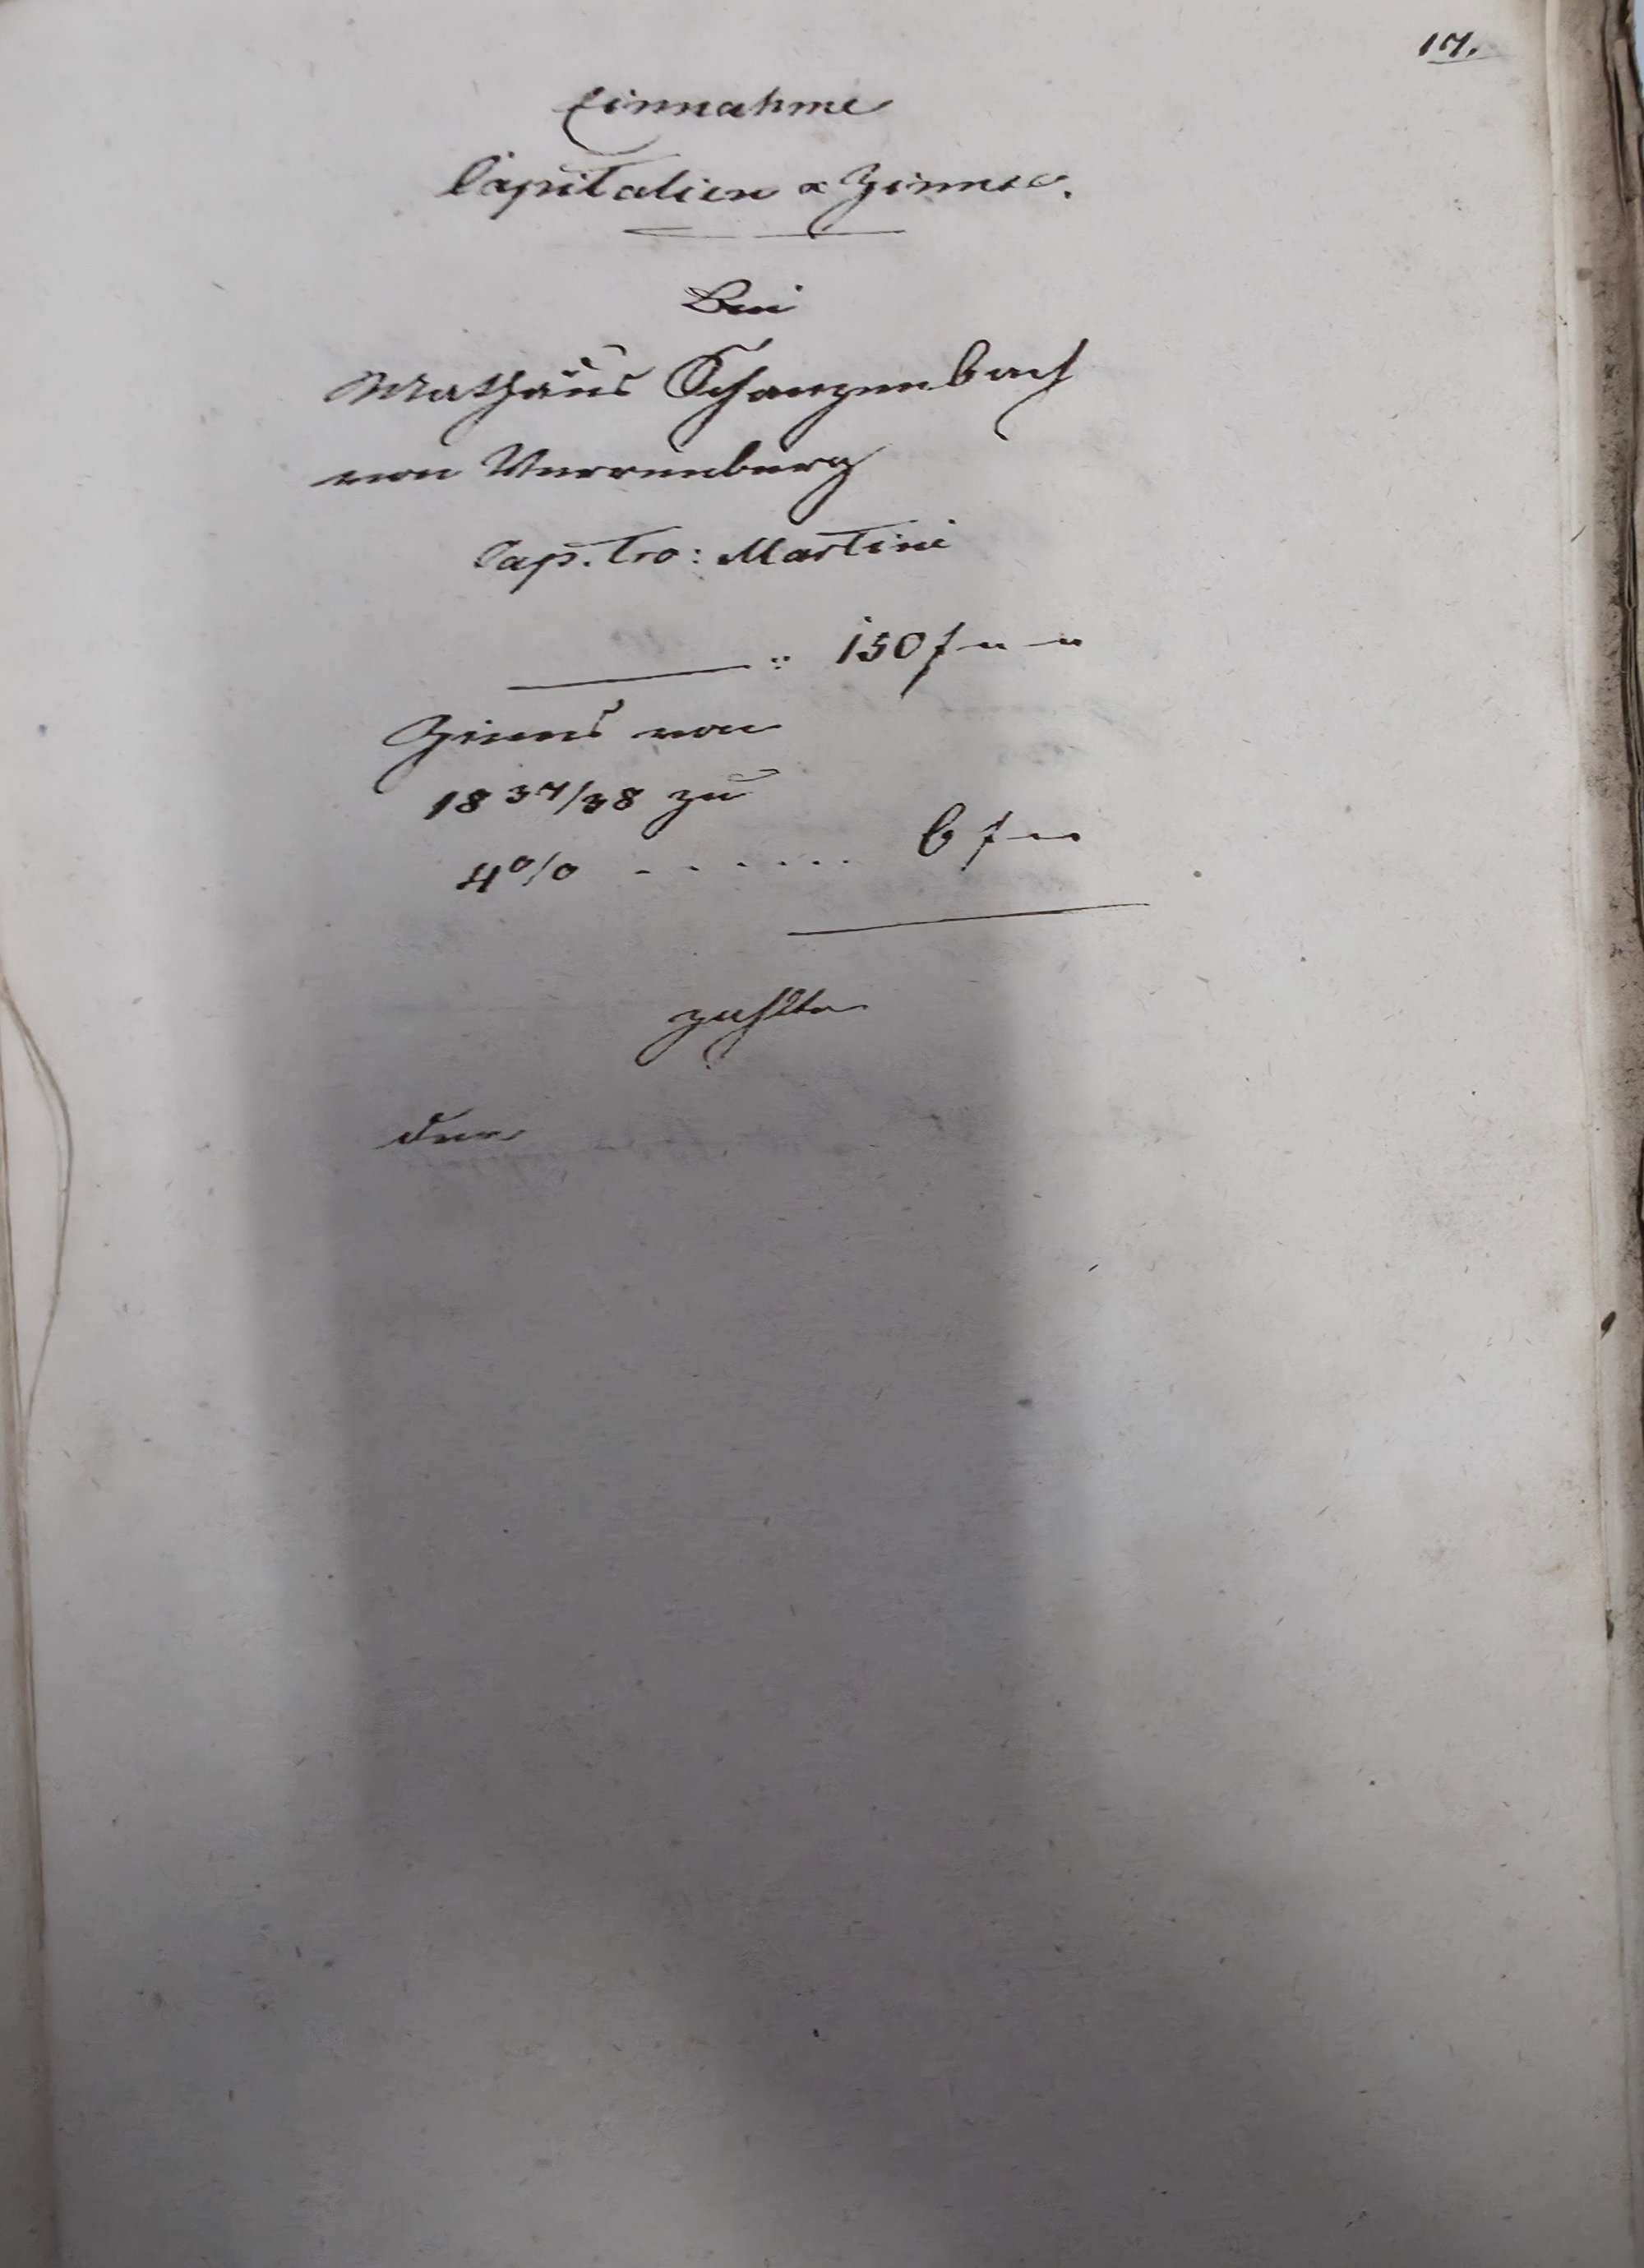 17.
Einnahme
Capitalien & Zinnse.
Bei
Mathäus Schanzenbach
von Verrenberg
Cap. Tro: Martini
150 f " — "
Zinns von
18 37/38 zu
4 % . . . . . . . 6 f —
zahlte